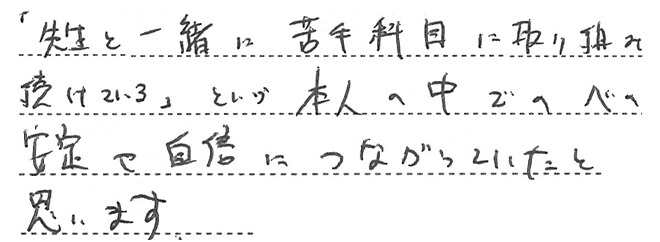 「先生と一緒に苦手科目に取り組み
続けている」という本人の中での心の
安定や自信につながっていたと
思います。